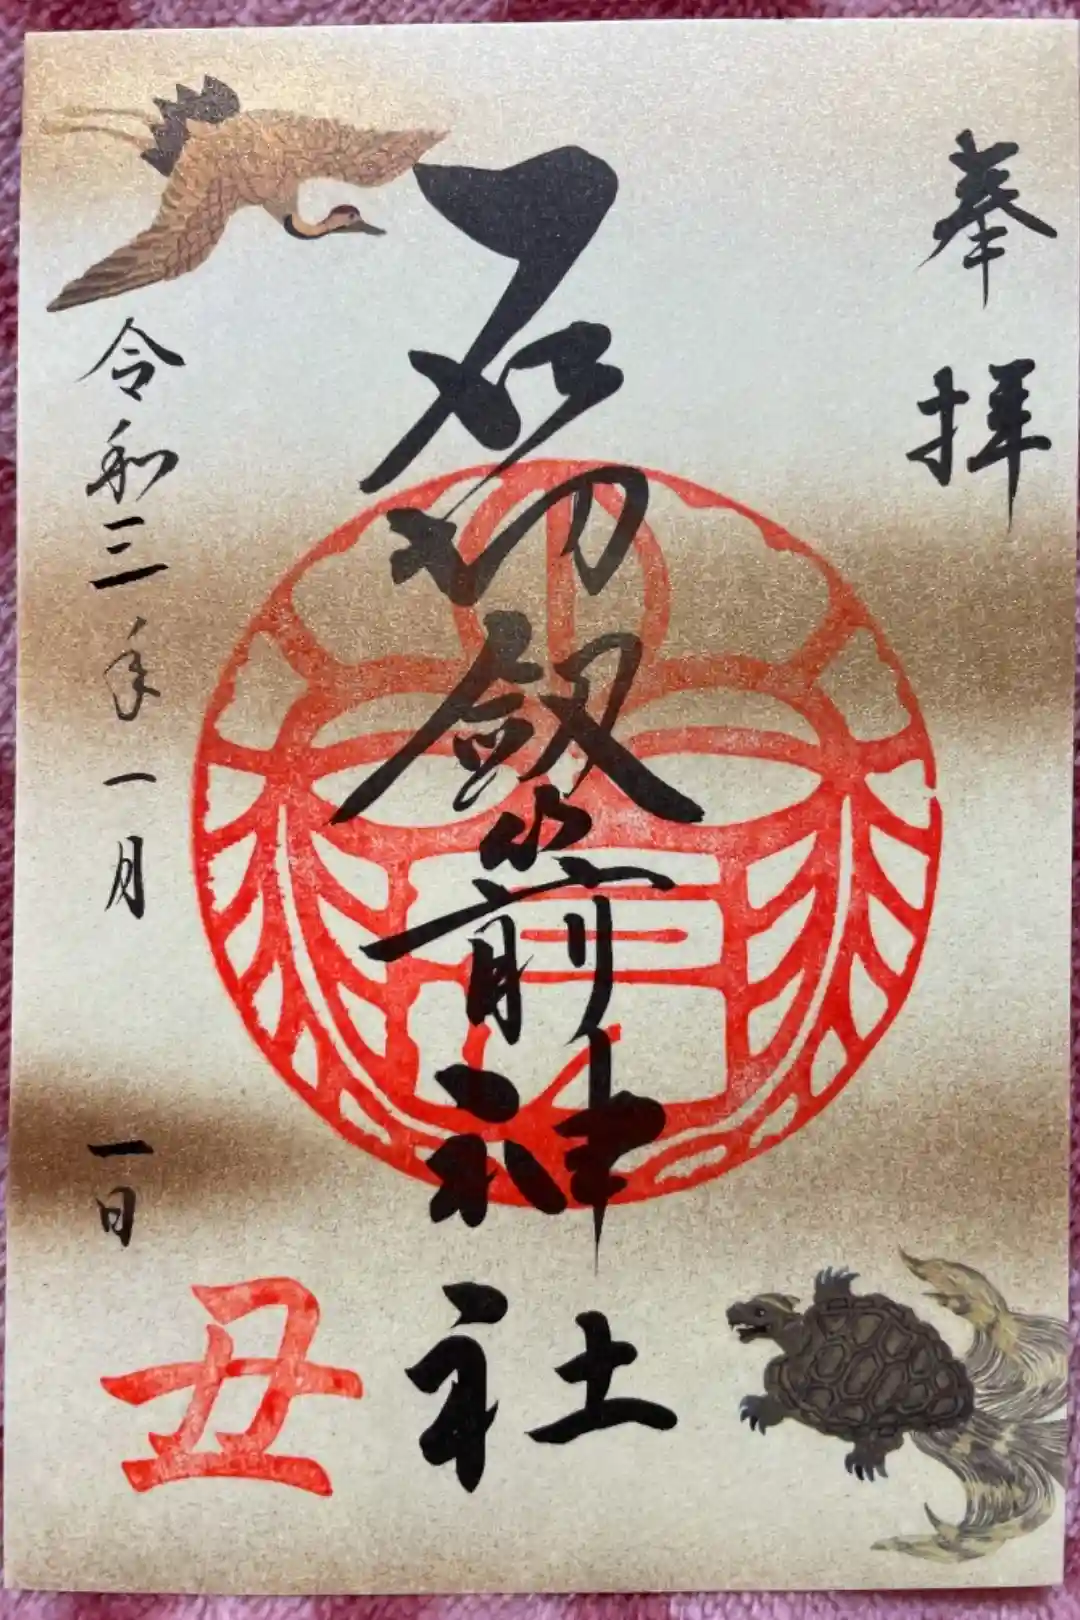 奉拝
石切劔箭神社
令和三年一月一日
丑